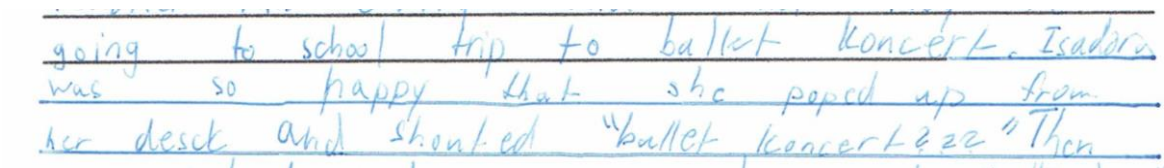 going to school trip to ballet koncert. Isadora
was so happy that she poped up from
her desck and shouted "ballet koncert???" Then